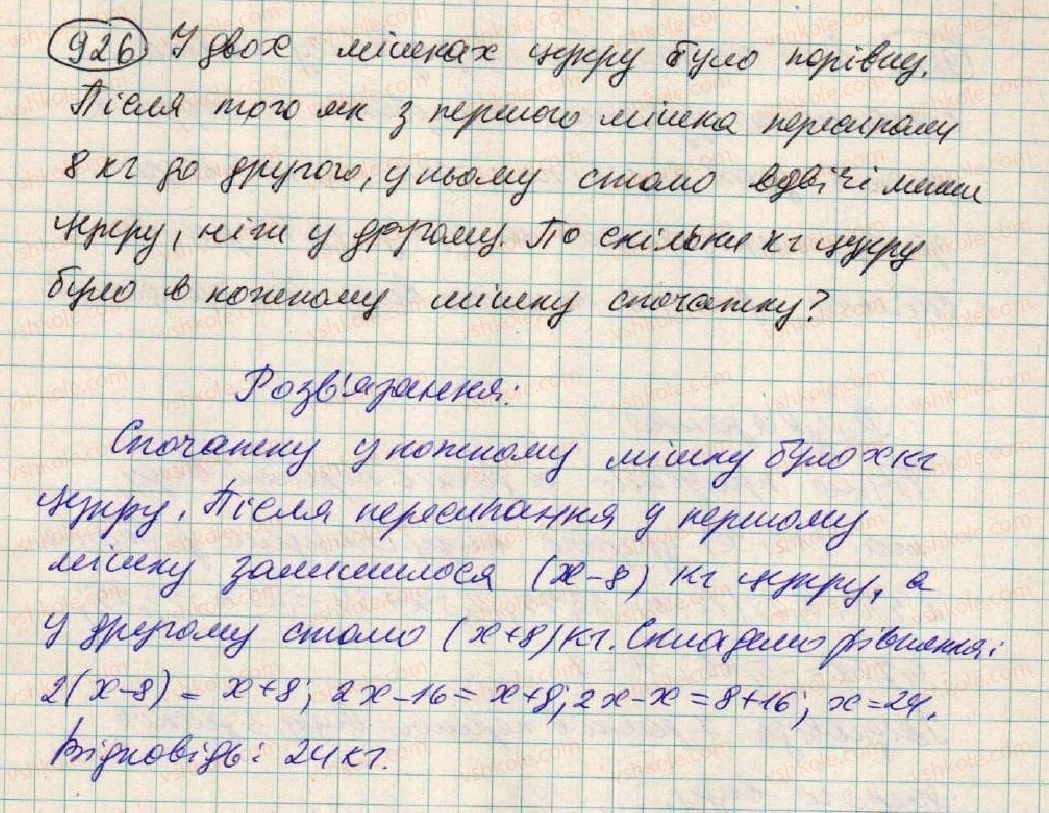 926 У двох мішках цукру було порівну.
Після того як з першого мішка пересипали
8 кг до другого, у ньому стало вдвічі менше
цукру, ніж у другому. По скільки кг цукру
було в кожному мішку спочатку?
Розв'язання:
Спочатку у кожному мішку було x кг
цукру. Після пересипання у першому
мішку залишилося (x-8) кг цукру, а
у другому стало (x+8) кг. Складемо рівняння:
2(x-8) = x+8; 2x-16 = x+8; 2x-x = 8+16; x=24.
Відповідь: 24 кг.